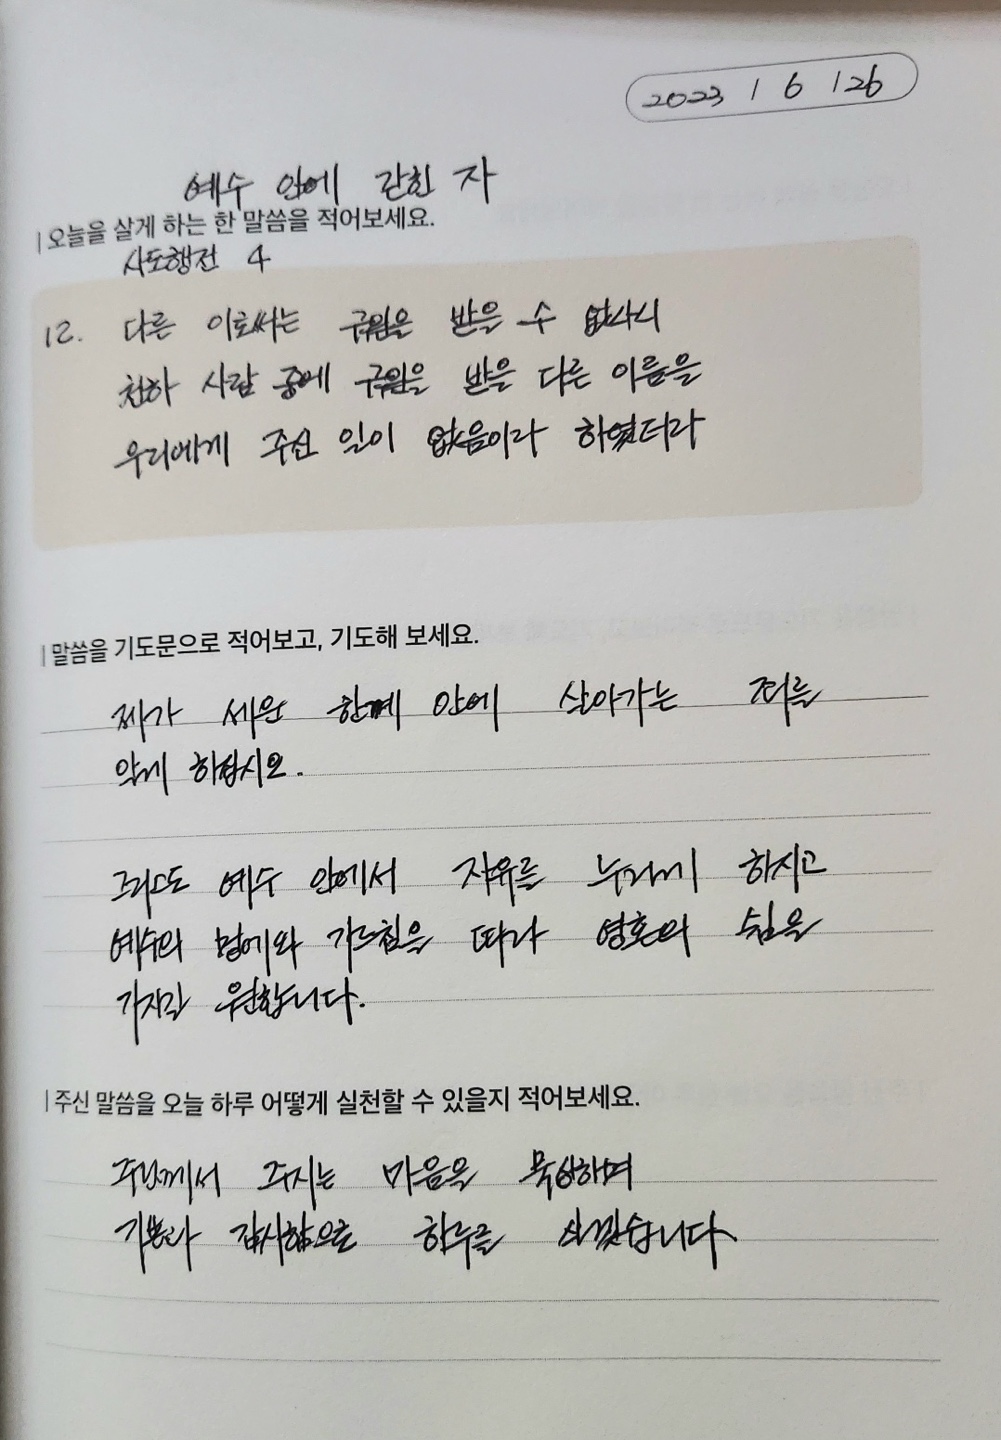 2023 / 6 / 26
예수 안에 갇힌 자
오늘을 살게 하는 한 말씀을 적어보세요.
사도행전 4
12. 다른 이로써는 구원을 받을 수 없나니
천하 사람 중에 구원을 받을 다른 이름을
우리에게 주신 일이 없음이라 하였더라
말씀을 기도문으로 적어보고, 기도해 보세요.
제가 세운 한계 안에 살아가는 저를
알게 하옵시오.
그리스도 예수 안에서 자유를 누리게 하시고
예수의 멍에와 가르침을 따라 영혼의 쉼을
가지길 원합니다.
주신 말씀을 오늘 하루 어떻게 실천할 수 있을지 적어보세요.
주님께서 주시는 마음을 묵상하며
기쁨과 감사함으로 하루를 살겠습니다